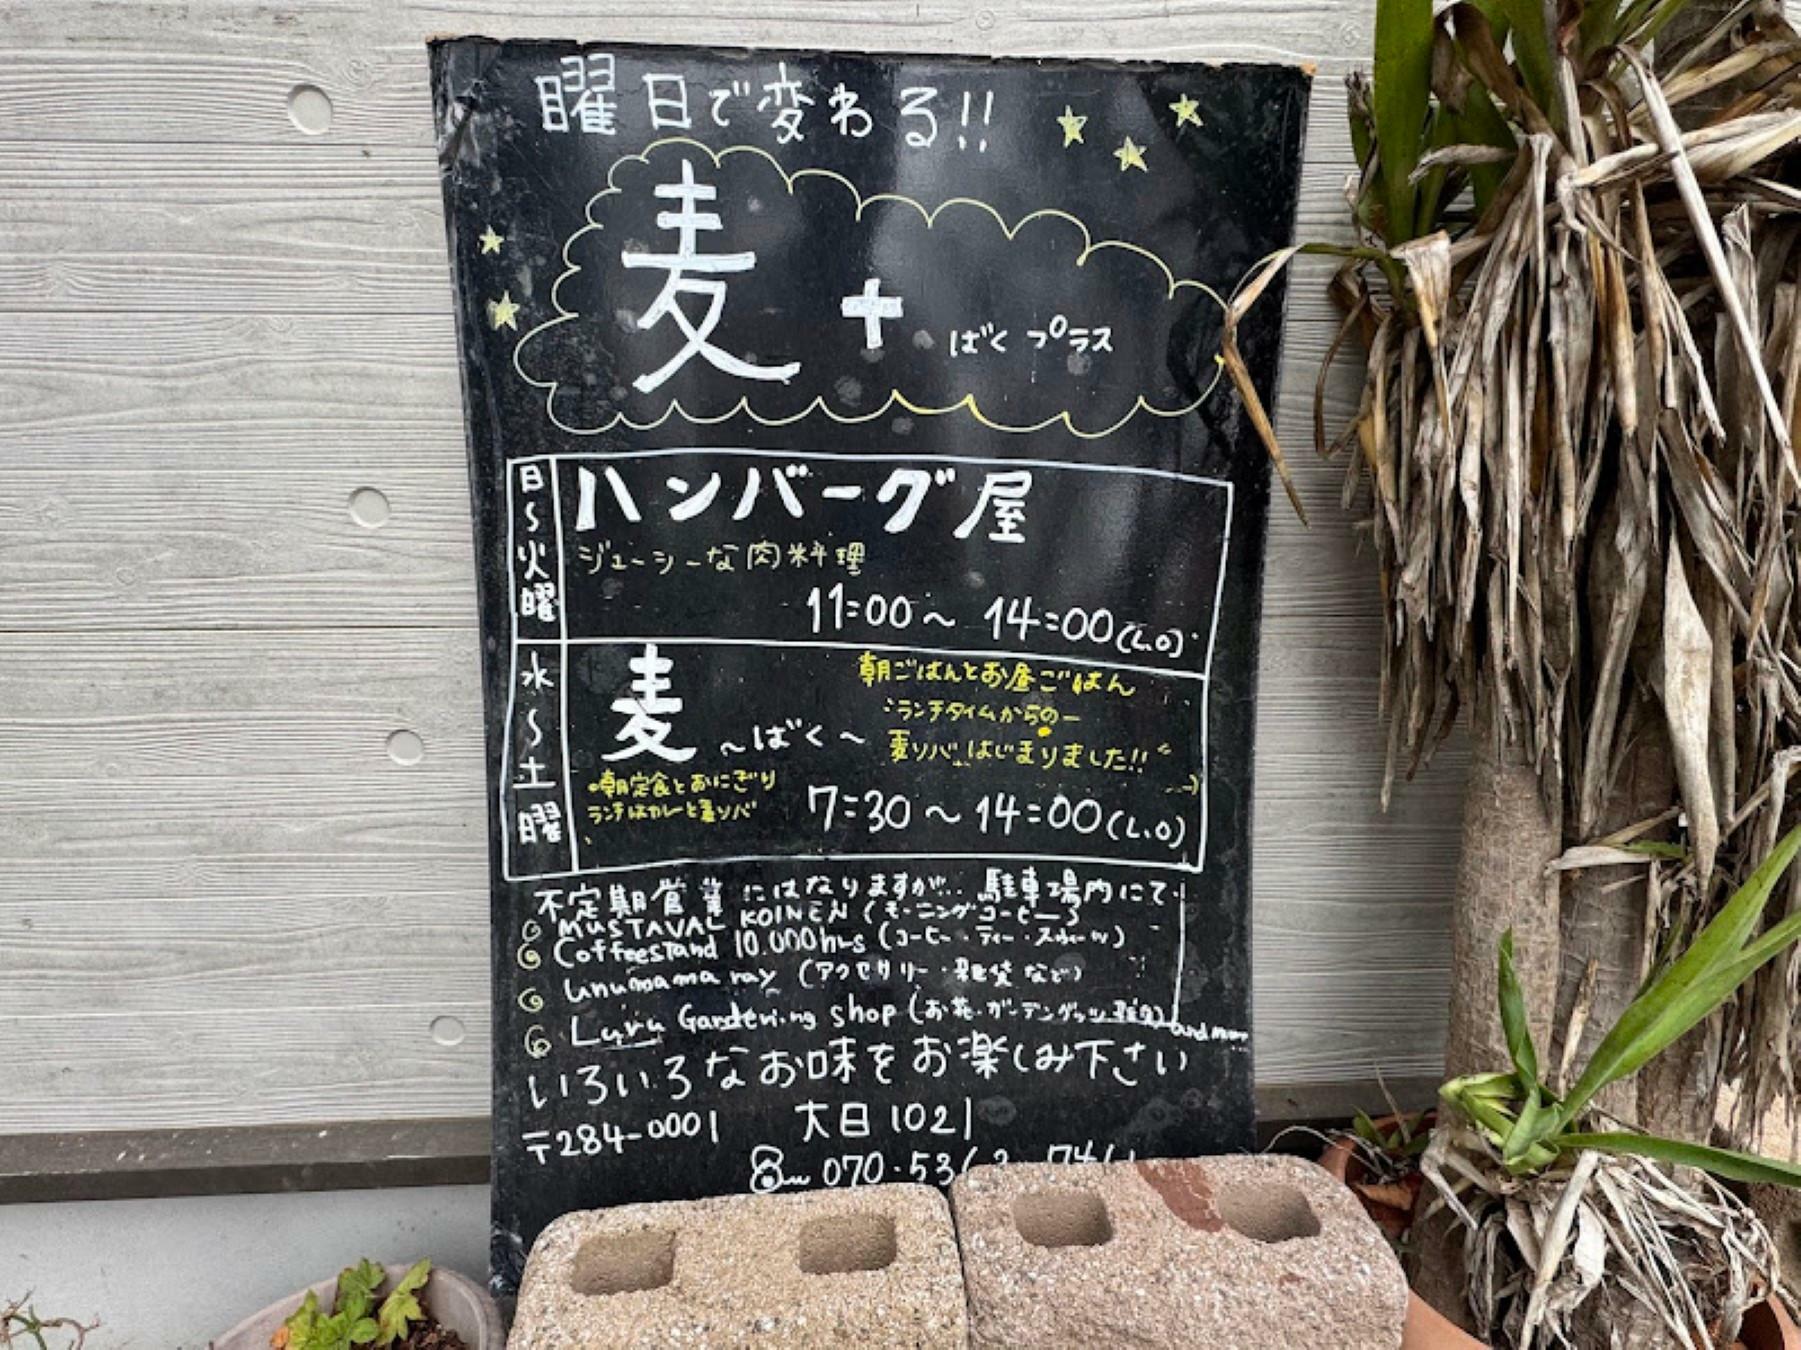 曜日で変わる!!
麦 + ばくプラス
日〜火曜
ハンバーグ屋
ジューシーな肉料理
11:00〜14:00(L.O)
水〜土曜
麦 〜ばく〜
朝ごはんとお昼ごはん
ランチタイムからのー
麦ソバはじまりました!!
朝定食とおにぎり
ランチはカレーと麦ソバ
7:30〜14:00(L.O)
不定期営業にはなりますが.. 駐車場内にて
MUSTAVAL KOINEN (モーニングコーヒー)
Coffeestand 10.000hrs (コーヒー・ティー・スウィーツ)
unumama ray (アクセサリー・雑貨など)
Luru Gardening shop (お花・ガーデングッツ 雑貨) and more
いろいろなお味をお楽しみ下さい
〒284-0001 大日1021
070-53